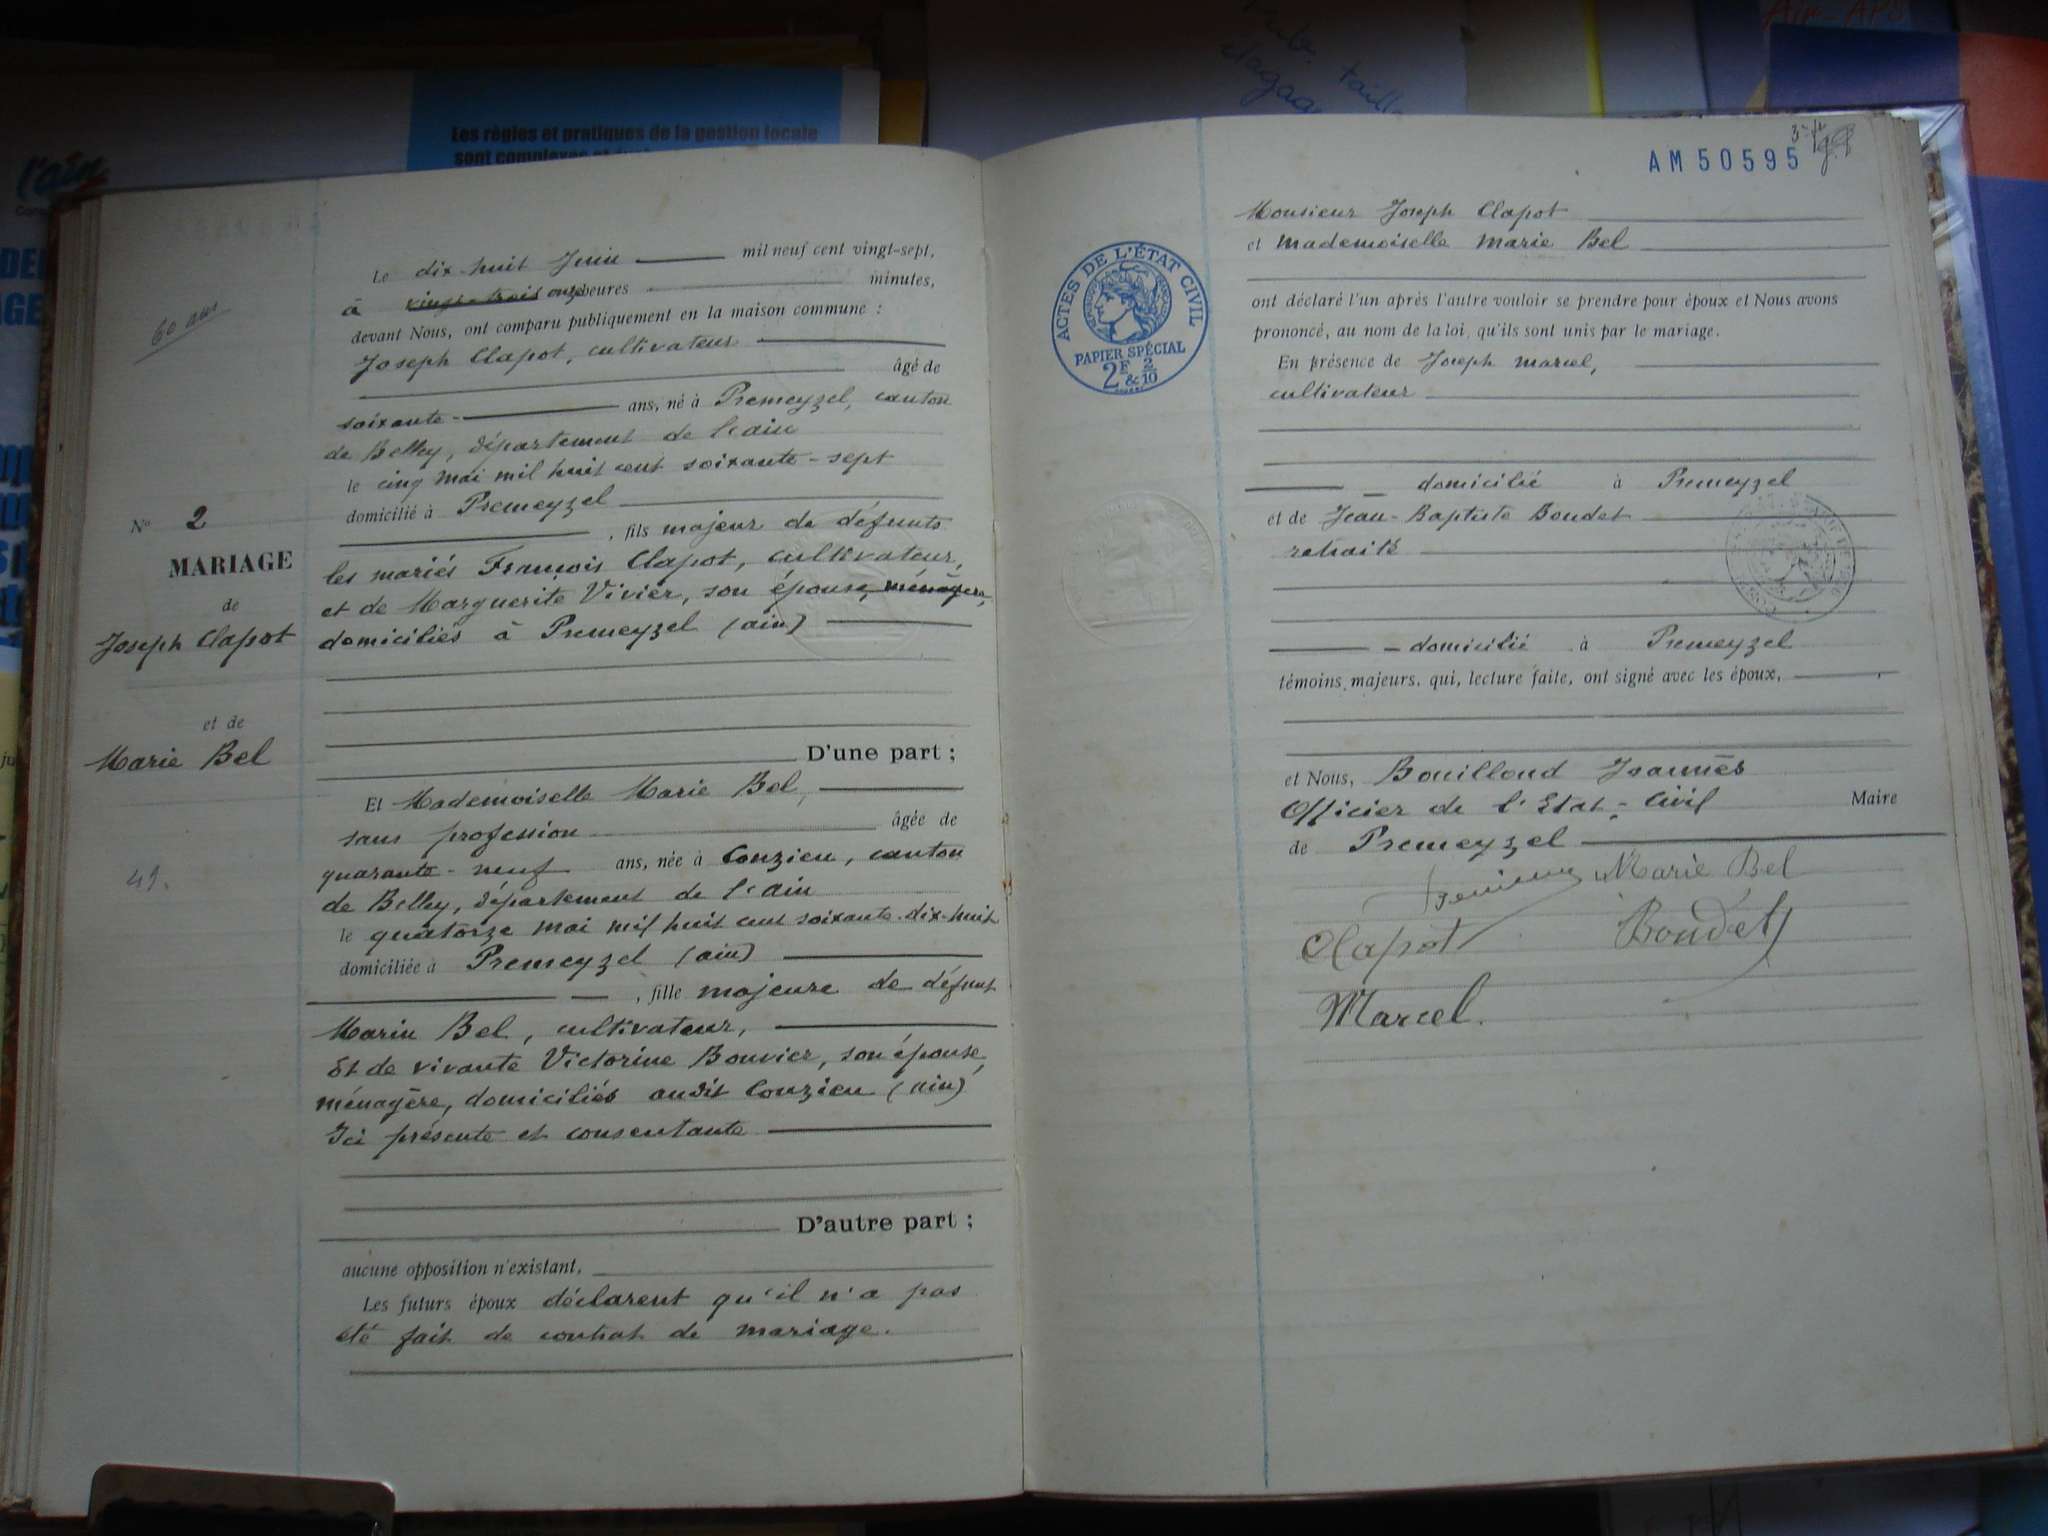 Les règles et pratiques de la gestion locale
l'ain
60 ans
Le dix-huit Juin mil neuf cent vingt-sept,
à vingt-trois onze heures minutes,
devant Nous, ont comparu publiquement en la maison commune :
Joseph Clapot, cultivateur
âgé de
soixante - ans, né à Premeyzel, canton
de Belley, département de l'ain
le cinq mai mil huit cent soixante-sept
domicilié à Premeyzel
, fils majeur de défunts
les mariés François Clapot, cultivateur,
et de Marguerite Vivier, son épouse, ménagère,
domiciliés à Premeyzel (ain)
No 2
MARIAGE
de
Joseph Clapot
et de
Marie Bel
D'une part ;
Et Mademoiselle Marie Bel,
sans profession âgée de
quarante-neuf ans, née à Conzieu, canton
de Belley, département de l'ain
le quatorze mai mil huit cent soixante-dix-huit
domiciliée à Premeyzel (ain)
, fille majeure de défunt
Marin Bel, cultivateur,
Et de vivante Victorine Bouvier, son épouse,
ménagère, domiciliés audit Conzieu (ain)
Ici présente et consentante
49.
D'autre part ;
aucune opposition n'existant,
Les futurs époux déclarent qu'il n'a pas
été fait de contrat de mariage.
AM50595
ACTES DE L'ÉTAT CIVIL
PAPIER SPÉCIAL
2F & 2/10
Monsieur Joseph Clapot
et Mademoiselle Marie Bel
ont déclaré l'un après l'autre vouloir se prendre pour époux et Nous avons
prononcé, au nom de la loi, qu'ils sont unis par le mariage.
En présence de Joseph Marcel,
cultivateur
domicilié à Premeyzel
et de Jean-Baptiste Boudet
retraité
domicilié à Premeyzel
témoins majeurs, qui, lecture faite, ont signé avec les époux,
et Nous, Bouilloud Joannès
Officier de l'Etat-Civil Maire
de Premeyzel
Marie Bel
Clapot Boudet
Marcel.